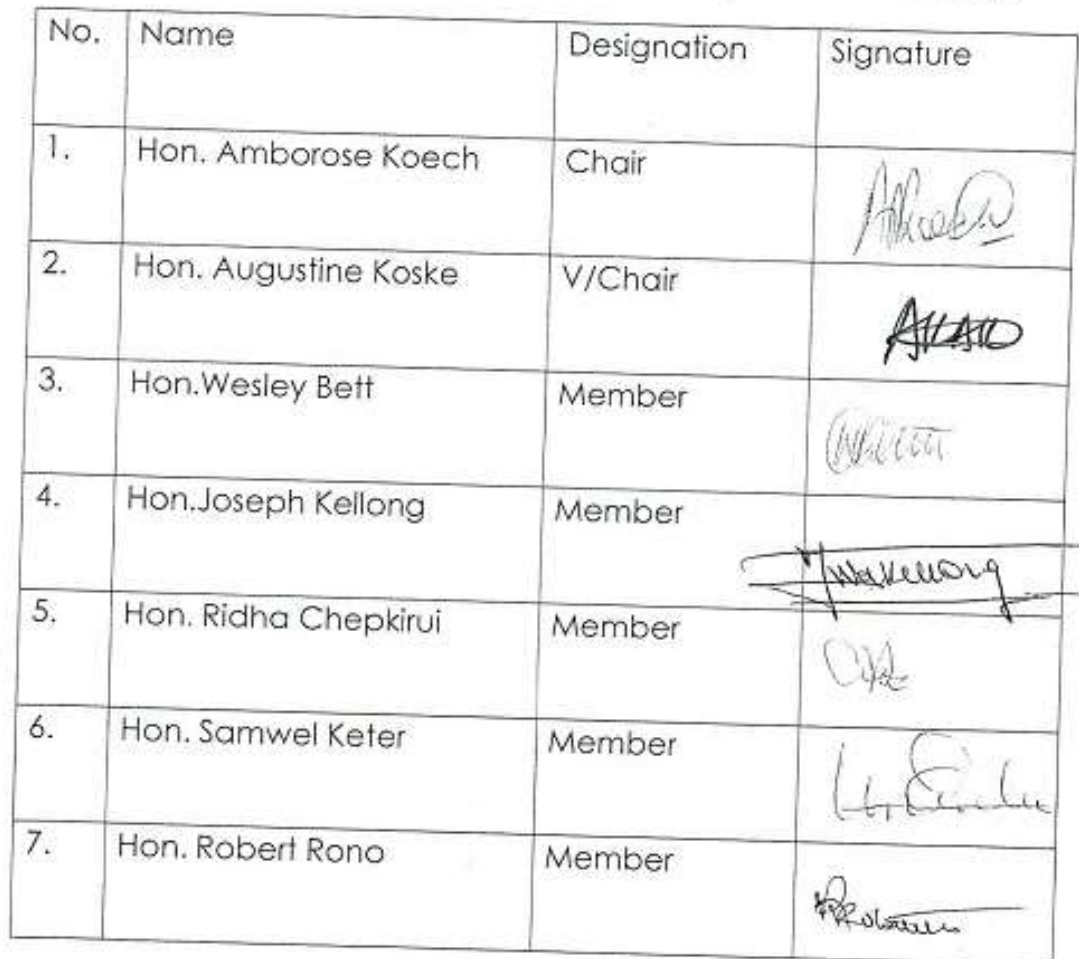 No. Name Designation Signature
1. Hon. Amborose Koech Chair
2. Hon. Augustine Koske V/Chair
3. Hon.Wesley Bett Member
4. Hon.Joseph Kellong Member
5. Hon. Ridha Chepkirui Member
6. Hon. Samwel Keter Member
7. Hon. Robert Rono Member